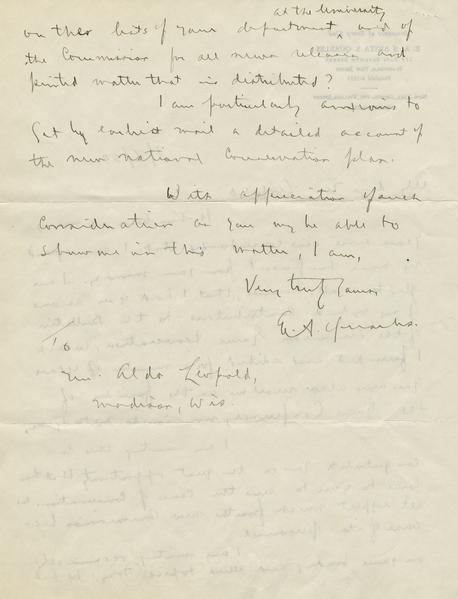 at the University
on the lists of your department, and of
the Commission for all news releases and
printed matter that is distributed?
I am particularly anxious to
get by earliest mail a detailed account of
the new national Conservation plan.
With appreciation of such
consideration as you may be able to
show me in this matter, I am,
Very truly yours,
E. A. Quarles.
To
Mr. Aldo Leopold,
Madison, Wis.